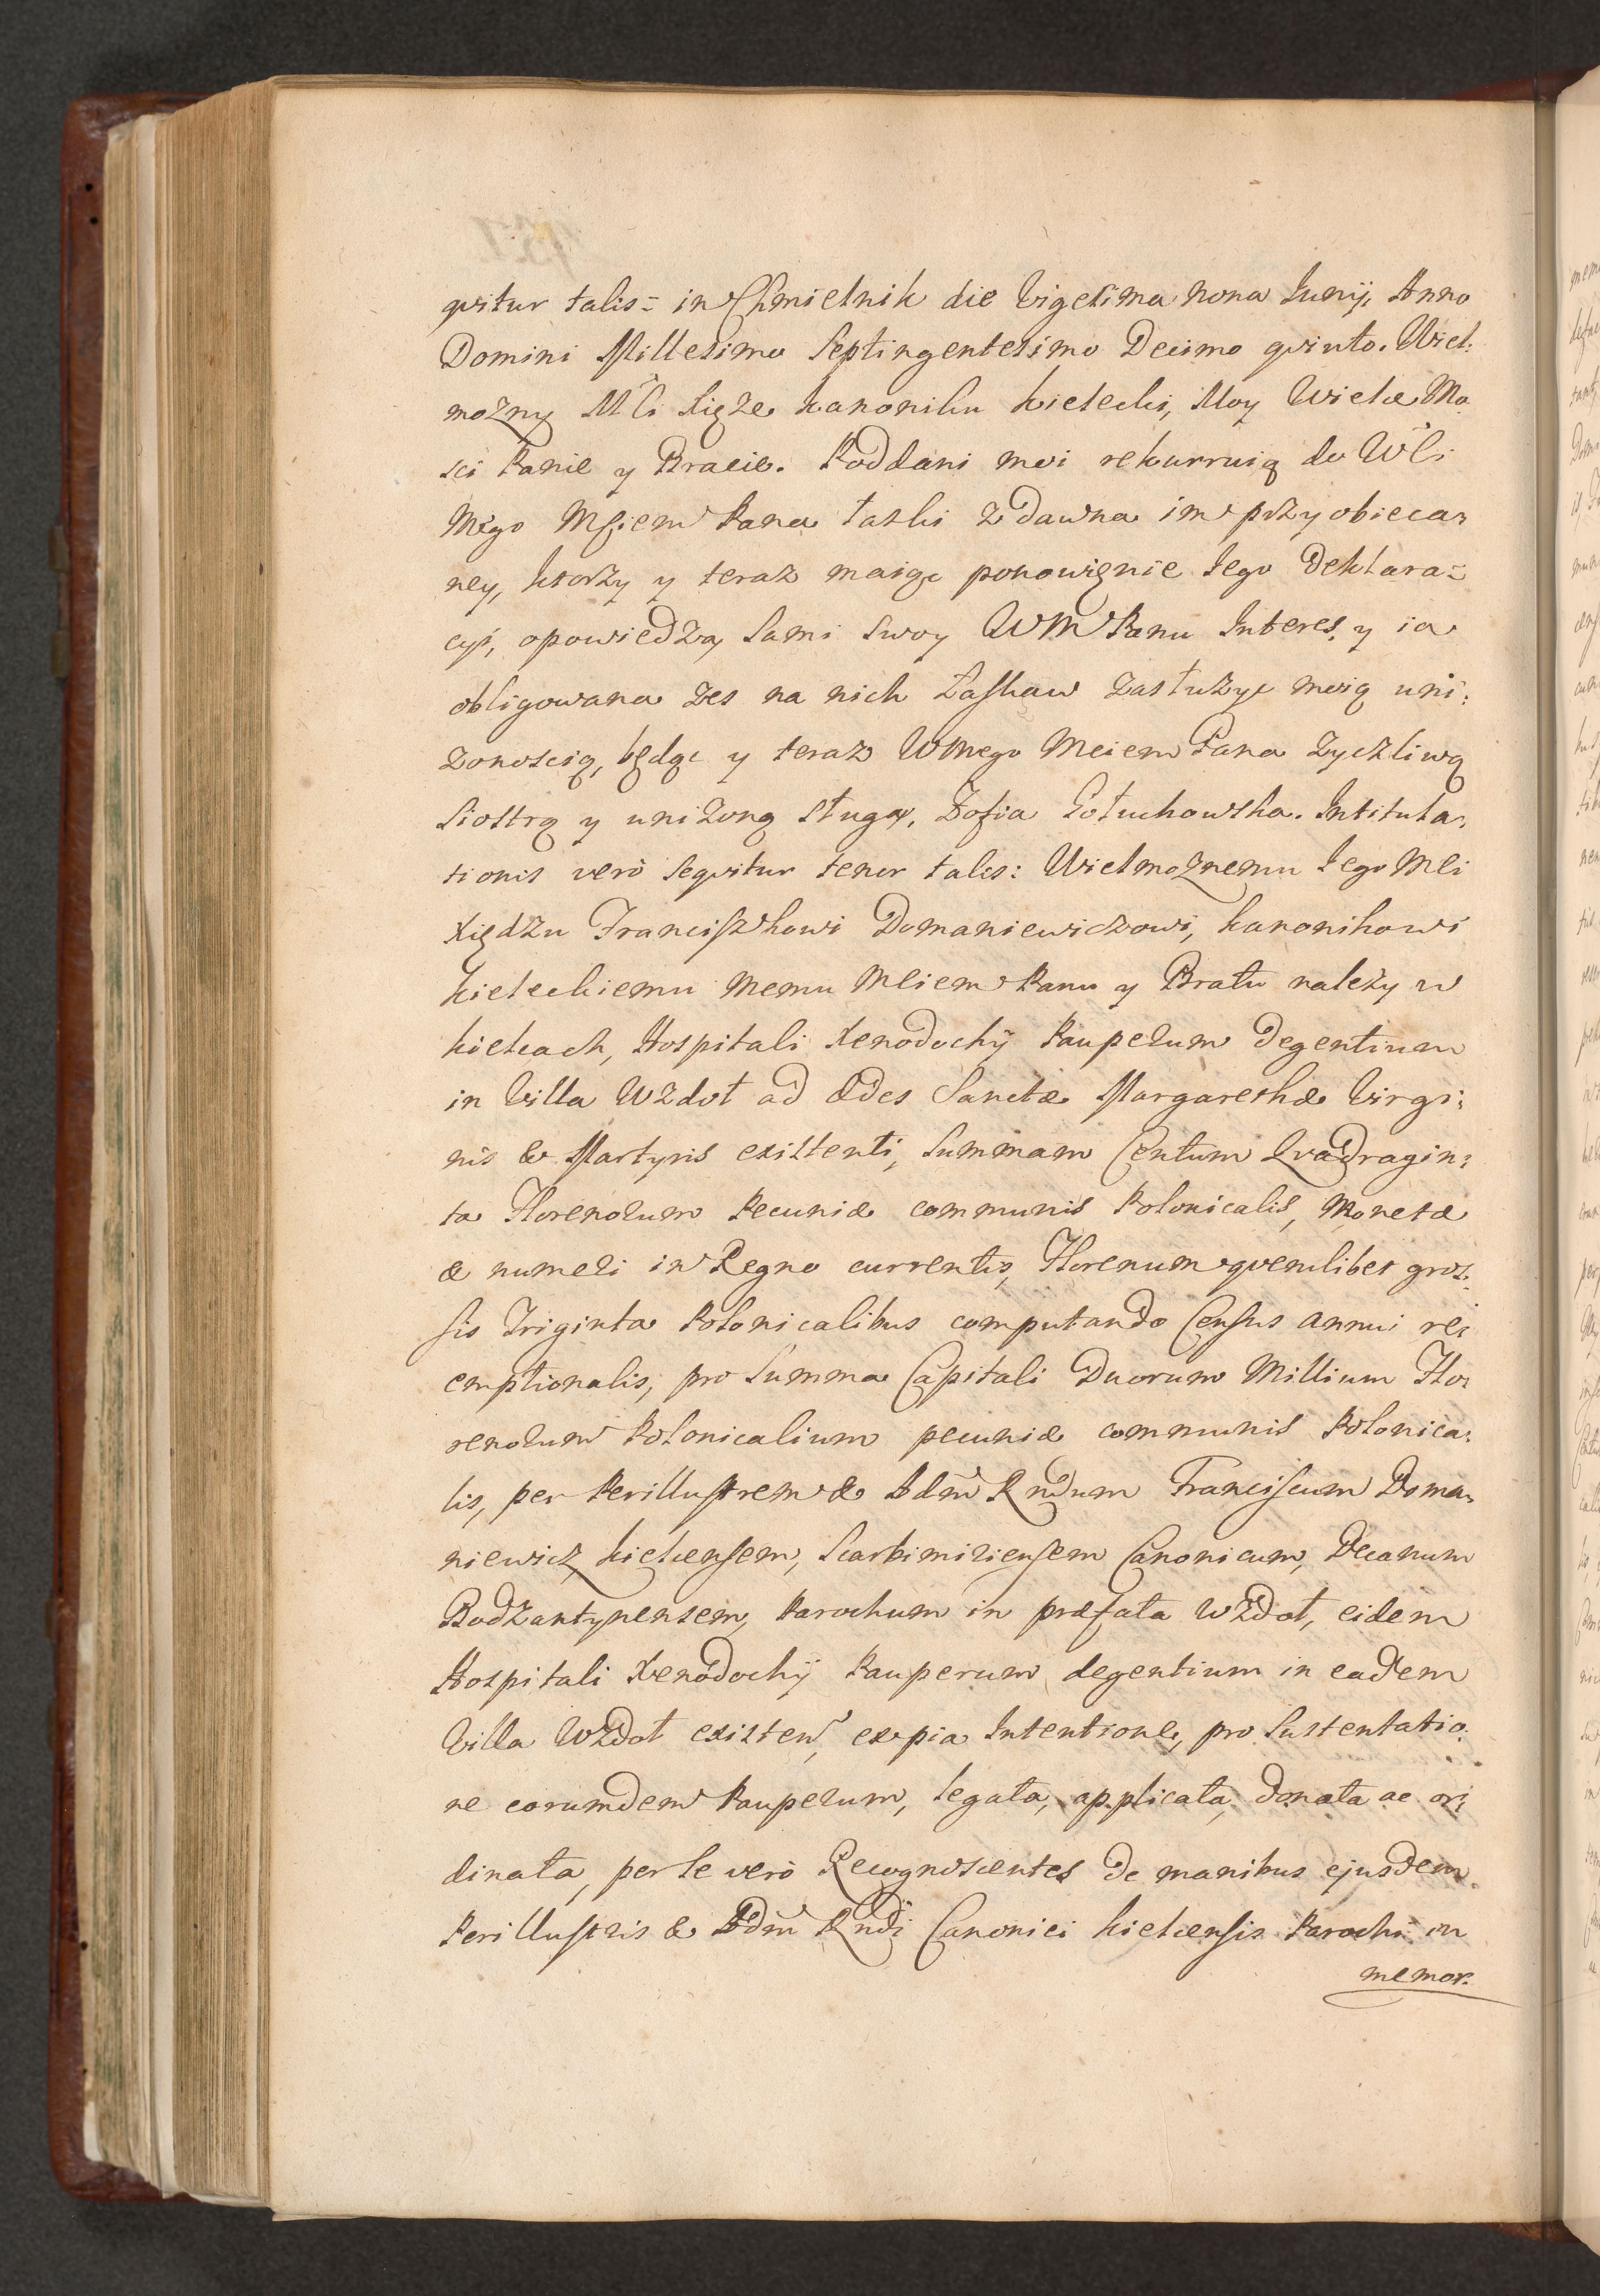 qvitur talis= in Chmielnik die Vigesima nona Junij, Anno
Domini Millesimo Septingentesimo Decimo qvinto. Wiel:
mozny Mći Xięże Kanoniku Kielecki, Moy Wielce Mo
sci Panie y Bracie. Poddani moi rekurruią do WMći
Mego Msciem Pana łaski zdawna im przyobieca=
ney, ktorzy y teraz maiąc ponowięnie Jego Deklara=
cyi, opowiedzą sami swoy WM Panu Interes, y ia
obligowana zes na nich łaskaw zasłużyc moią uni:
zonoscią, będąc y teraz WMnego Mciem Pana życzliwą
siostrą y uniżoną sługą, Zofia Gołuchowska. Intitula:
tionis verò seqvitur tenor talis: Wielmożnemu Jego Mći
Xiędzu Franciszkowi Domaniewiczowi, Kanonikowi
Kieleckiemu Memu Mciem Panu y Bratu należy w
Kielcach, Hospitali Xenodochÿ Pauperum degentium
in Villa Wzdoł ad Ædes Sanctæ Margarethæ Virgi:
nis & Martyris existenti, Summam Centum Qvadragin:
ta Florenorum Pecuniæ communis Polonicalis, Monetæ
& numeri in Regno currentis, Florenum qvemlibet gros:
sis Triginta Polonicalibus computando Census annui re:
emptionalis, pro Summa Capitali Duorum Millium Flo:
renorum Polonicalium pecuniæ communis Polonica:
lis, per Perillustrem & Adm̃ Rñdum Franciscum Doma:
niewicz, Kielcensem, Scarbimiriensem Canonicum, Decanum
Bodzantynensem, Parochum in præfata Wzdoł, eidem
Hospitali Xenodochÿ Pauperum, degentium in eadem
Villa Wzdoł existen, ex pia Intentione, pro Sustentatio:
ne eorumdem Pauperum, legata, applicata, donata ac or:
dinata, per se verò Recognoscentes de manibus ejusdem
Perillustris & Adm̃ Rñdi Canonici Kielcensis Parochi in
memor.